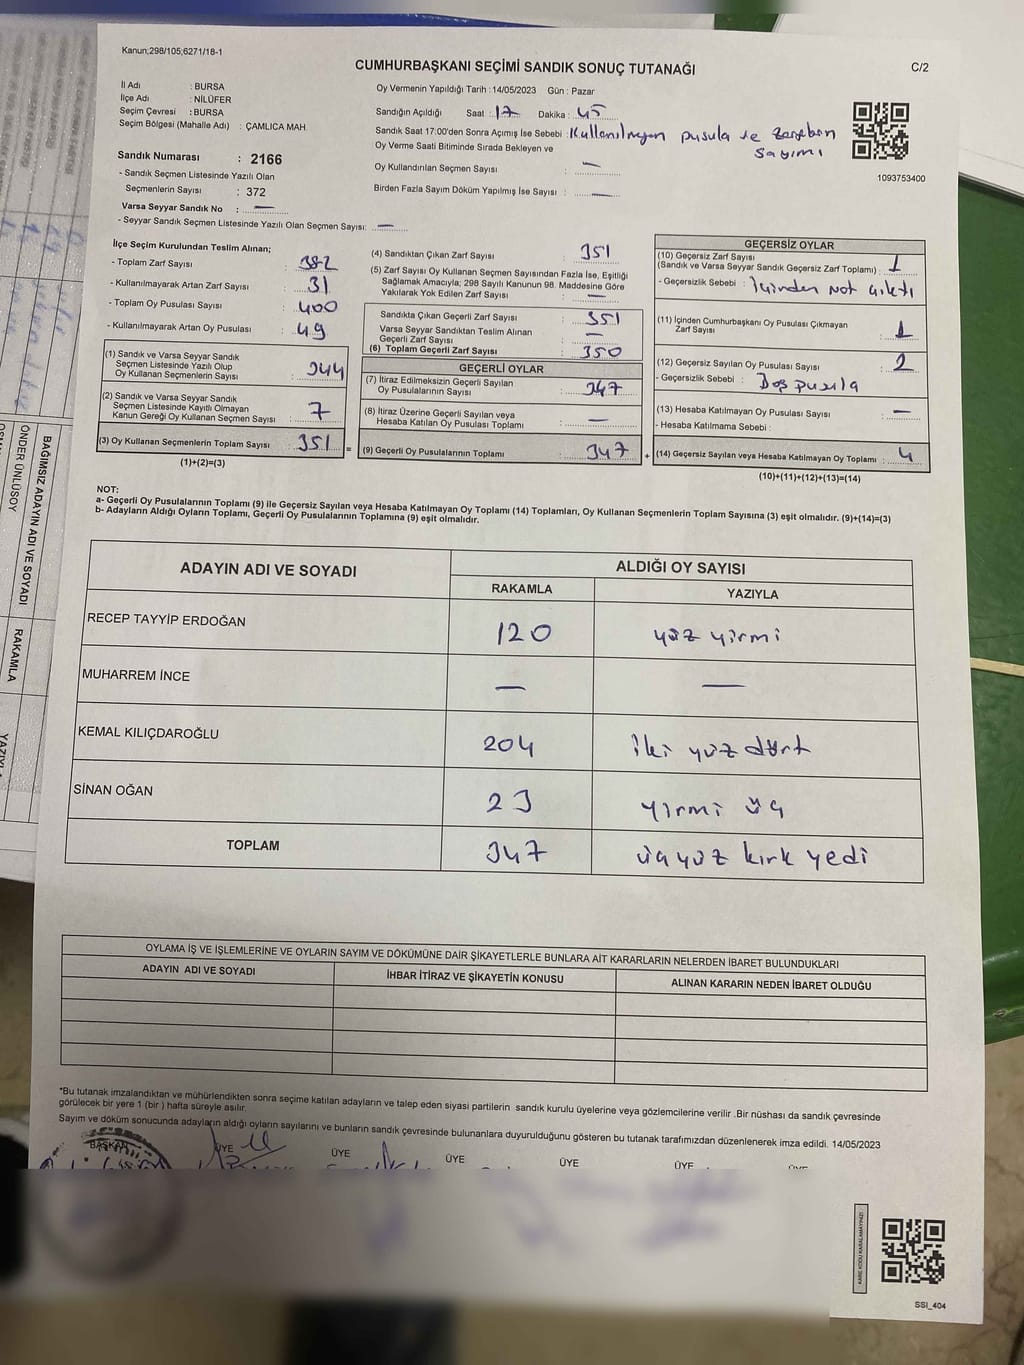 Kanun;298/105;6271/18-1
C/2
CUMHURBAŞKANI SEÇİMİ SANDIK SONUÇ TUTANAĞI
İl Adı : BURSA
İlçe Adı : NİLÜFER
Seçim Çevresi : BURSA
Seçim Bölgesi (Mahalle Adı) : ÇAMLICA MAH.
Sandık Numarası : 2166
- Sandık Seçmen Listesinde Yazılı Olan
Seçmenlerin Sayısı : 372
Varsa Seyyar Sandık No : —
- Seyyar Sandık Seçmen Listesinde Yazılı Olan Seçmen Sayısı: —
Oy Vermenin Yapıldığı Tarih :14/05/2023 Gün : Pazar
Sandığın Açıldığı Saat : 17 Dakika : 45
Sandık Saat 17:00'den Sonra Açımış İse Sebebi : Kullanılmayan pusula ve zarfların sayımı
Oy Verme Saati Bitiminde Sırada Bekleyen ve
Oy Kullandırılan Seçmen Sayısı : —
Birden Fazla Sayım Döküm Yapılmış İse Sayısı : —
1093753400
İlçe Seçim Kurulundan Teslim Alınan;
- Toplam Zarf Sayısı : 382
- Kullanılmayarak Artan Zarf Sayısı : 31
- Toplam Oy Pusulası Sayısı : 400
- Kullanılmayarak Artan Oy Pusulası : 49
(1) Sandık ve Varsa Seyyar Sandık
Seçmen Listesinde Yazılı Olup
Oy Kullanan Seçmenlerin Sayısı : 344
(2) Sandık ve Varsa Seyyar Sandık
Seçmen Listesinde Kayıtlı Olmayan
Kanun Gereği Oy Kullanan Seçmen Sayısı : 7
(3) Oy Kullanan Seçmenlerin Toplam Sayısı : 351 =
(1)+(2)=(3)
(4) Sandıktan Çıkan Zarf Sayısı : 351
(5) Zarf Sayısı Oy Kullanan Seçmen Sayısından Fazla İse, Eşitliği
Sağlamak Amacıyla; 298 Sayılı Kanunun 98. Maddesine Göre
Yakılarak Yok Edilen Zarf Sayısı : —
Sandıkta Çıkan Geçerli Zarf Sayısı : 351
Varsa Seyyar Sandıktan Teslim Alınan
Geçerli Zarf Sayısı : —
(6) Toplam Geçerli Zarf Sayısı : 350
GEÇERLİ OYLAR
(7) İtiraz Edilmeksizin Geçerli Sayılan
Oy Pusulalarının Sayısı : 347
(8) İtiraz Üzerine Geçerli Sayılan veya
Hesaba Katılan Oy Pusulası Toplamı : —
(9) Geçerli Oy Pusulalarının Toplamı : 347 +
GEÇERSİZ OYLAR
(10) Geçersiz Zarf Sayısı
(Sandık ve Varsa Seyyar Sandık Geçersiz Zarf Toplamı) : 1
- Geçersizlik Sebebi : İçinden not çıktı
(11) İçinden Cumhurbaşkanı Oy Pusulası Çıkmayan
Zarf Sayısı : 1
(12) Geçersiz Sayılan Oy Pusulası Sayısı : 2
- Geçersizlik Sebebi : Boş pusula
(13) Hesaba Katılmayan Oy Pusulası Sayısı : —
- Hesaba Katılmama Sebebi :
(14) Geçersiz Sayılan veya Hesaba Katılmayan Oy Toplamı : 4
(10)+(11)+(12)+(13)=(14)
NOT:
a- Geçerli Oy Pusulalarının Toplamı (9) ile Geçersiz Sayılan veya Hesaba Katılmayan Oy Toplamı (14) Toplamları, Oy Kullanan Seçmenlerin Toplam Sayısına (3) eşit olmalıdır. (9)+(14)=(3)
b- Adayların Aldığı Oyların Toplamı, Geçerli Oy Pusulalarının Toplamına (9) eşit olmalıdır.
ADAYIN ADI VE SOYADI ALDIĞI OY SAYISI
RAKAMLA YAZIYLA
RECEP TAYYİP ERDOĞAN 120 yüz yirmi
MUHARREM İNCE — —
KEMAL KILIÇDAROĞLU 204 iki yüz dört
SİNAN OĞAN 23 yirmi üç
TOPLAM 347 üçyüz kırk yedi
OYLAMA İŞ VE İŞLEMLERİNE VE OYLARIN SAYIM VE DÖKÜMÜNE DAİR ŞİKAYETLERLE BUNLARA AİT KARARLARIN NELERDEN İBARET BULUNDUKLARI
ADAYIN ADI VE SOYADI İHBAR İTİRAZ VE ŞİKAYETİN KONUSU ALINAN KARARIN NEDEN İBARET OLDUĞU
*Bu tutanak imzalandıktan ve mühürlendikten sonra seçime katılan adayların ve talep eden siyasi partilerin sandık kurulu üyelerine veya gözlemcilerine verilir .Bir nüshası da sandık çevresinde
görülecek bir yere 1 (bir ) hafta süreyle asılır.
Sayım ve döküm sonucunda adayların aldığı oyların sayılarını ve bunların sandık çevresinde bulunanlara duyurulduğunu gösteren bu tutanak tarafımızdan düzenlenerek imza edildi. 14/05/2023
BAŞKAN ÜYE ÜYE ÜYE ÜYE ÜYE ÜYE
KARE KODU KARALAMAYINIZ!
SSI_404
BAĞIMSIZ ADAYIN ADI VE SOYADI RAKAMLA
ÖNDER ÜNLÜSOY